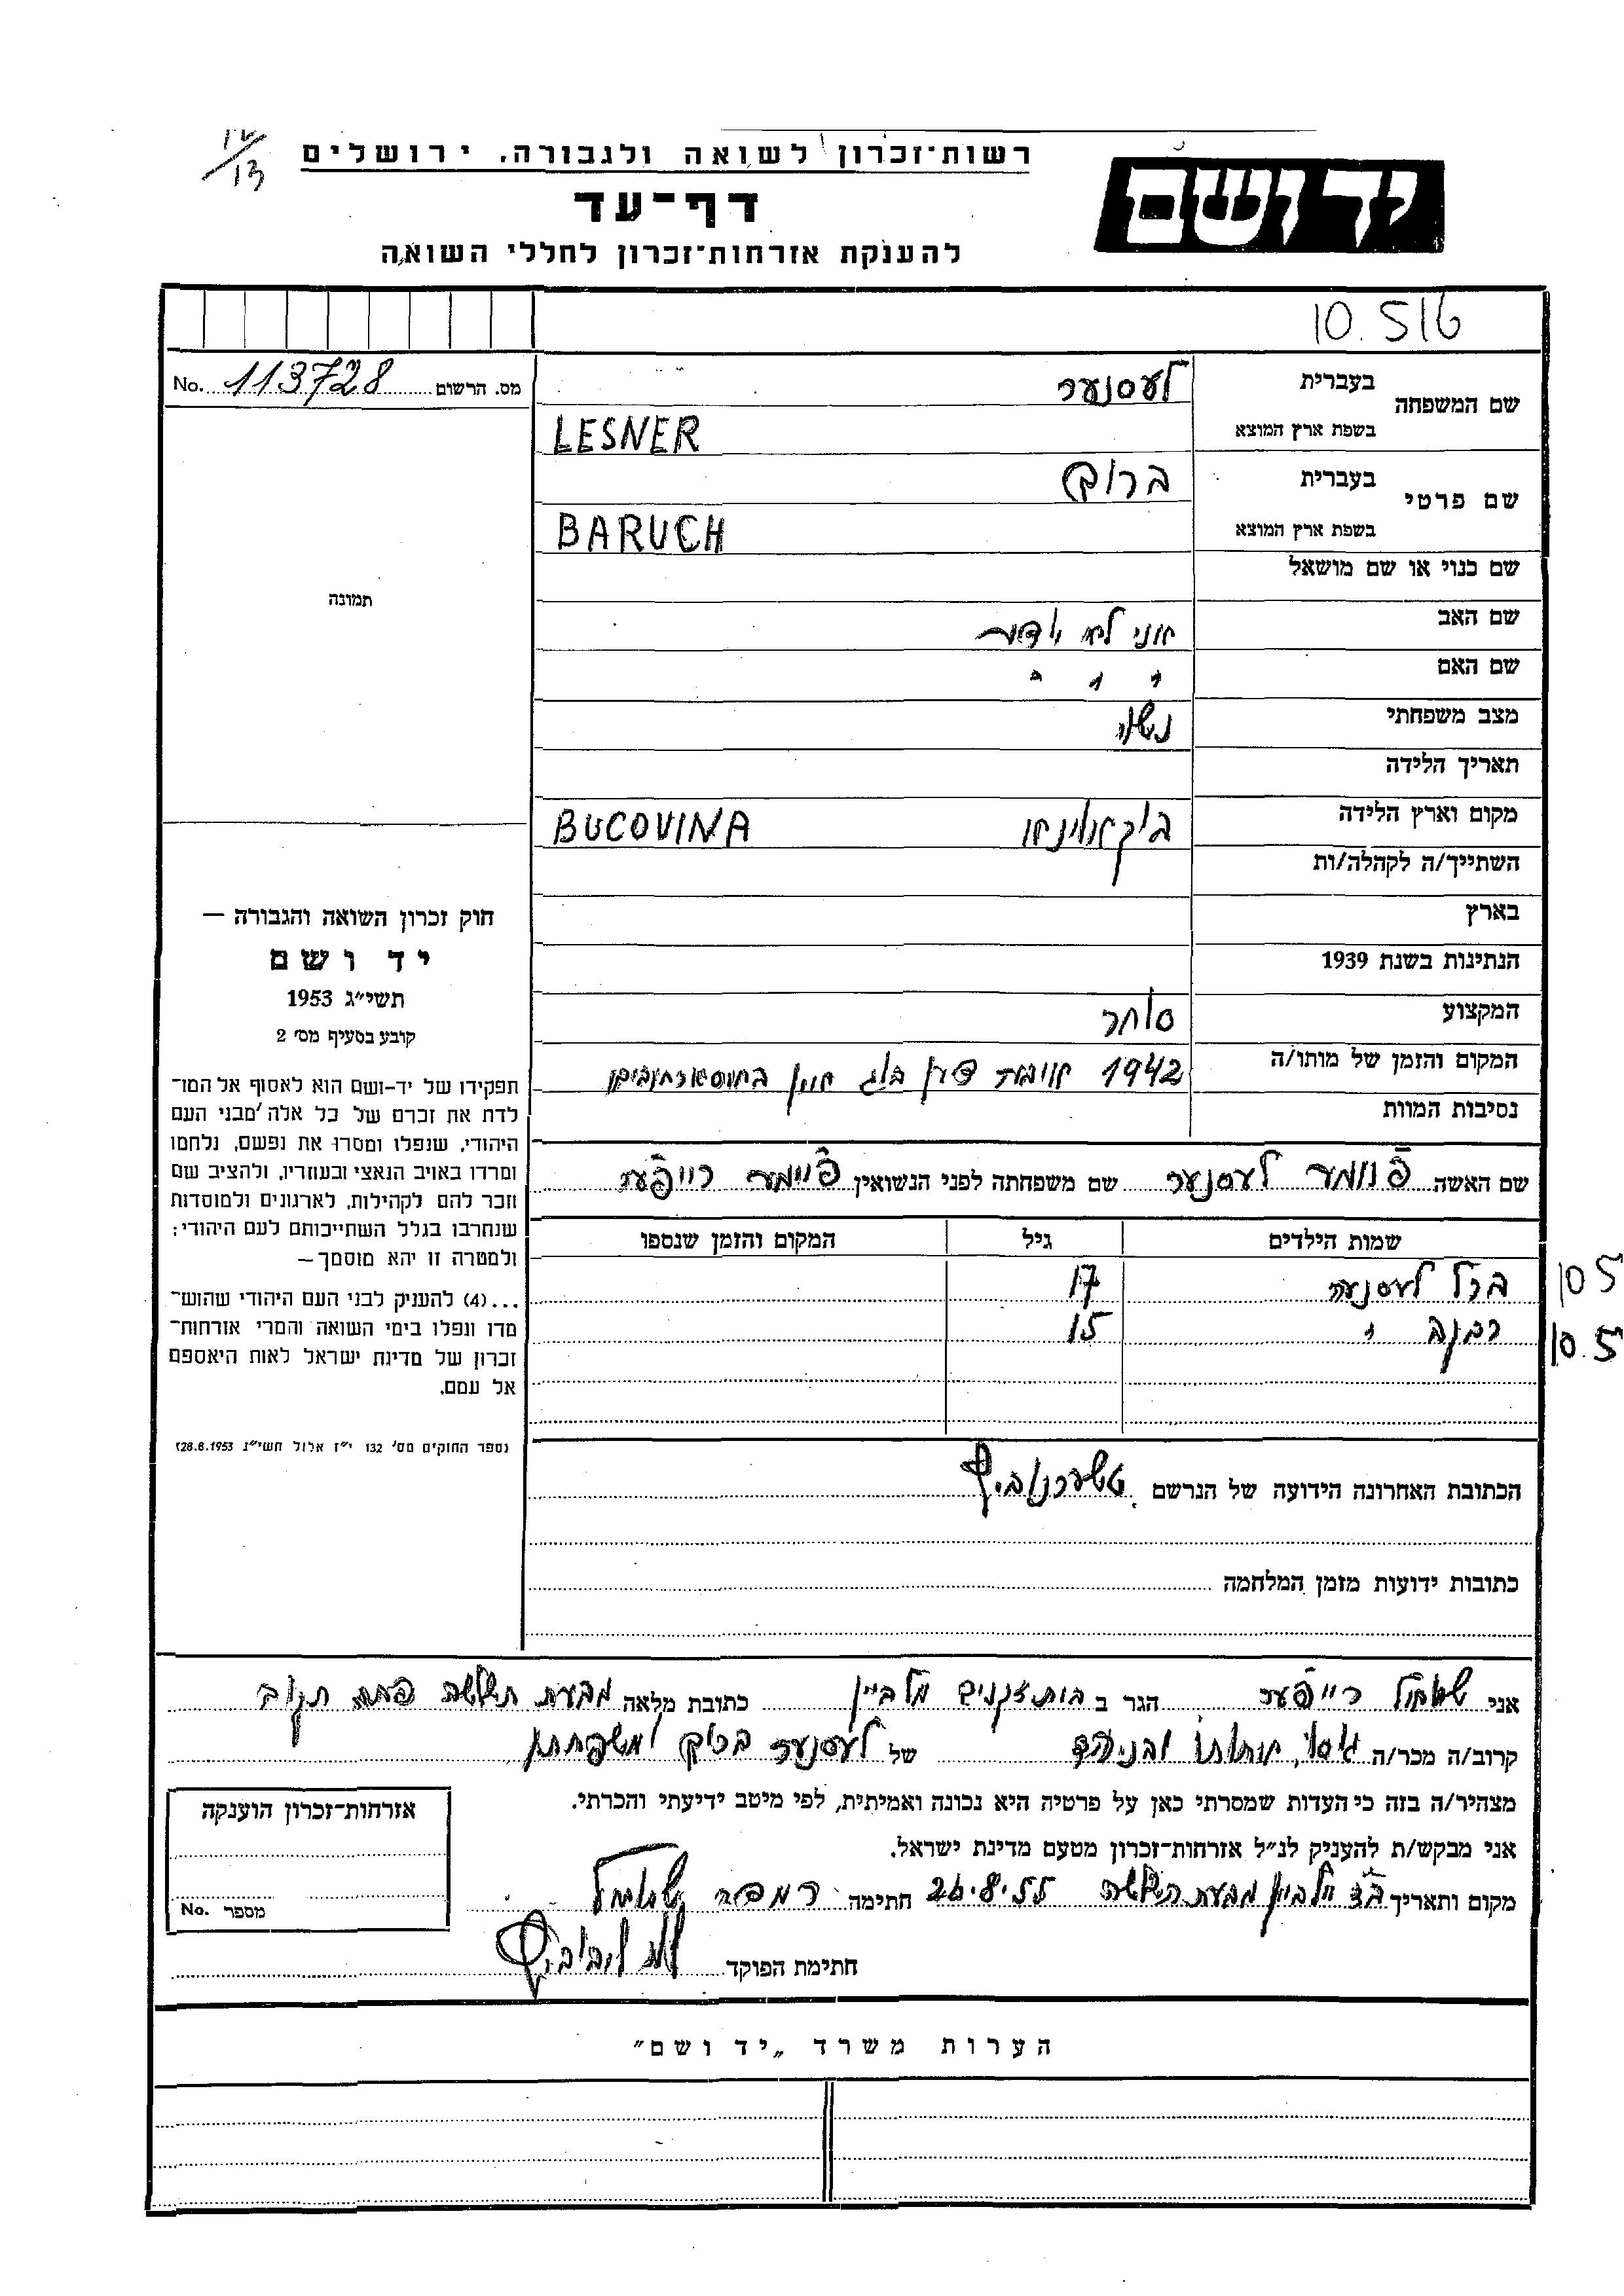 12/13
רשות־זכרון לשואה ולגבורה, ירושלים
יד ושם
דף־עד
להענקת אזרחות־זכרון לחללי השואה
10.516
מס. הרשום 113728 No.
שם המשפחה
בעברית לעסנער
בשפת ארץ המוצא LESNER
שם פרטי
בעברית ברוך
בשפת ארץ המוצא BARUCH
שם כנוי או שם מושאל
שם האב אני לא יודע
שם האם " " "
מצב משפחתי נשוי
תאריך הלידה
מקום וארץ הלידה BUCOVINA
השתייך/ה לקהלה/ות
בארץ
הנתינות בשנת 1939
המקצוע סוחר
המקום והזמן של מותו/ה 1942
נסיבות המוות
שם האשה לעסנער שם משפחתה לפני הנשואין
שמות הילדים גיל המקום והזמן שנספו
ברל לעסנער 17
רבקה " 15
10.5
10.5
הכתובת האחרונה הידועה של הנרשם טשערנוביץ
כתובות ידועות מזמן המלחמה
תמונה
חוק זכרון השואה והגבורה —
יד ושם
תשי״ג 1953
קובע בסעיף מס׳ 2
תפקידו של יד־ושם הוא לאסוף אל המו־
לדת את זכרם של כל אלה מבני העם
היהודי, שנפלו ומסרו את נפשם, נלחמו
ומרדו באויב הנאצי ובעוזריו, ולהציב שם
וזכר להם לקהילות, לארגונים ולמוסדות
שנחרבו בגלל השתייכותם לעם היהודי;
ולמטרה זו יהא מוסמך —
...(4) להענק לבני העם היהודי שהוש־
מדו ונפלו בימי השואה והמרי אזרחות־
זכרון של מדינת ישראל לאות היאספם
אל עמם.
(ספר החוקים מס׳ 132 י״ז אלול תשי״ג 28.8.1953)
אני שמואל הגר ב בית זקנים מלבין כתובת מלאה גבעת השלשה פתח תקוה
קרוב/ה מכר/ה גיסו, אחותו של לעסנער ברוך ומשפחתו
מצהיר/ה בזה כי העדות שמסרתי כאן על פרטיה היא נכונה ואמיתית, לפי מיטב ידיעתי והכרתי.
אני מבקש/ת להעניק לנ״ל אזרחות־זכרון מטעם מדינת ישראל.
מקום ותאריך גבעת השלשה 26.8.55 חתימה שמואל
חתימת הפוקד
אזרחות־זכרון הוענקה
מספר No.
הערות משרד „יד ושם״